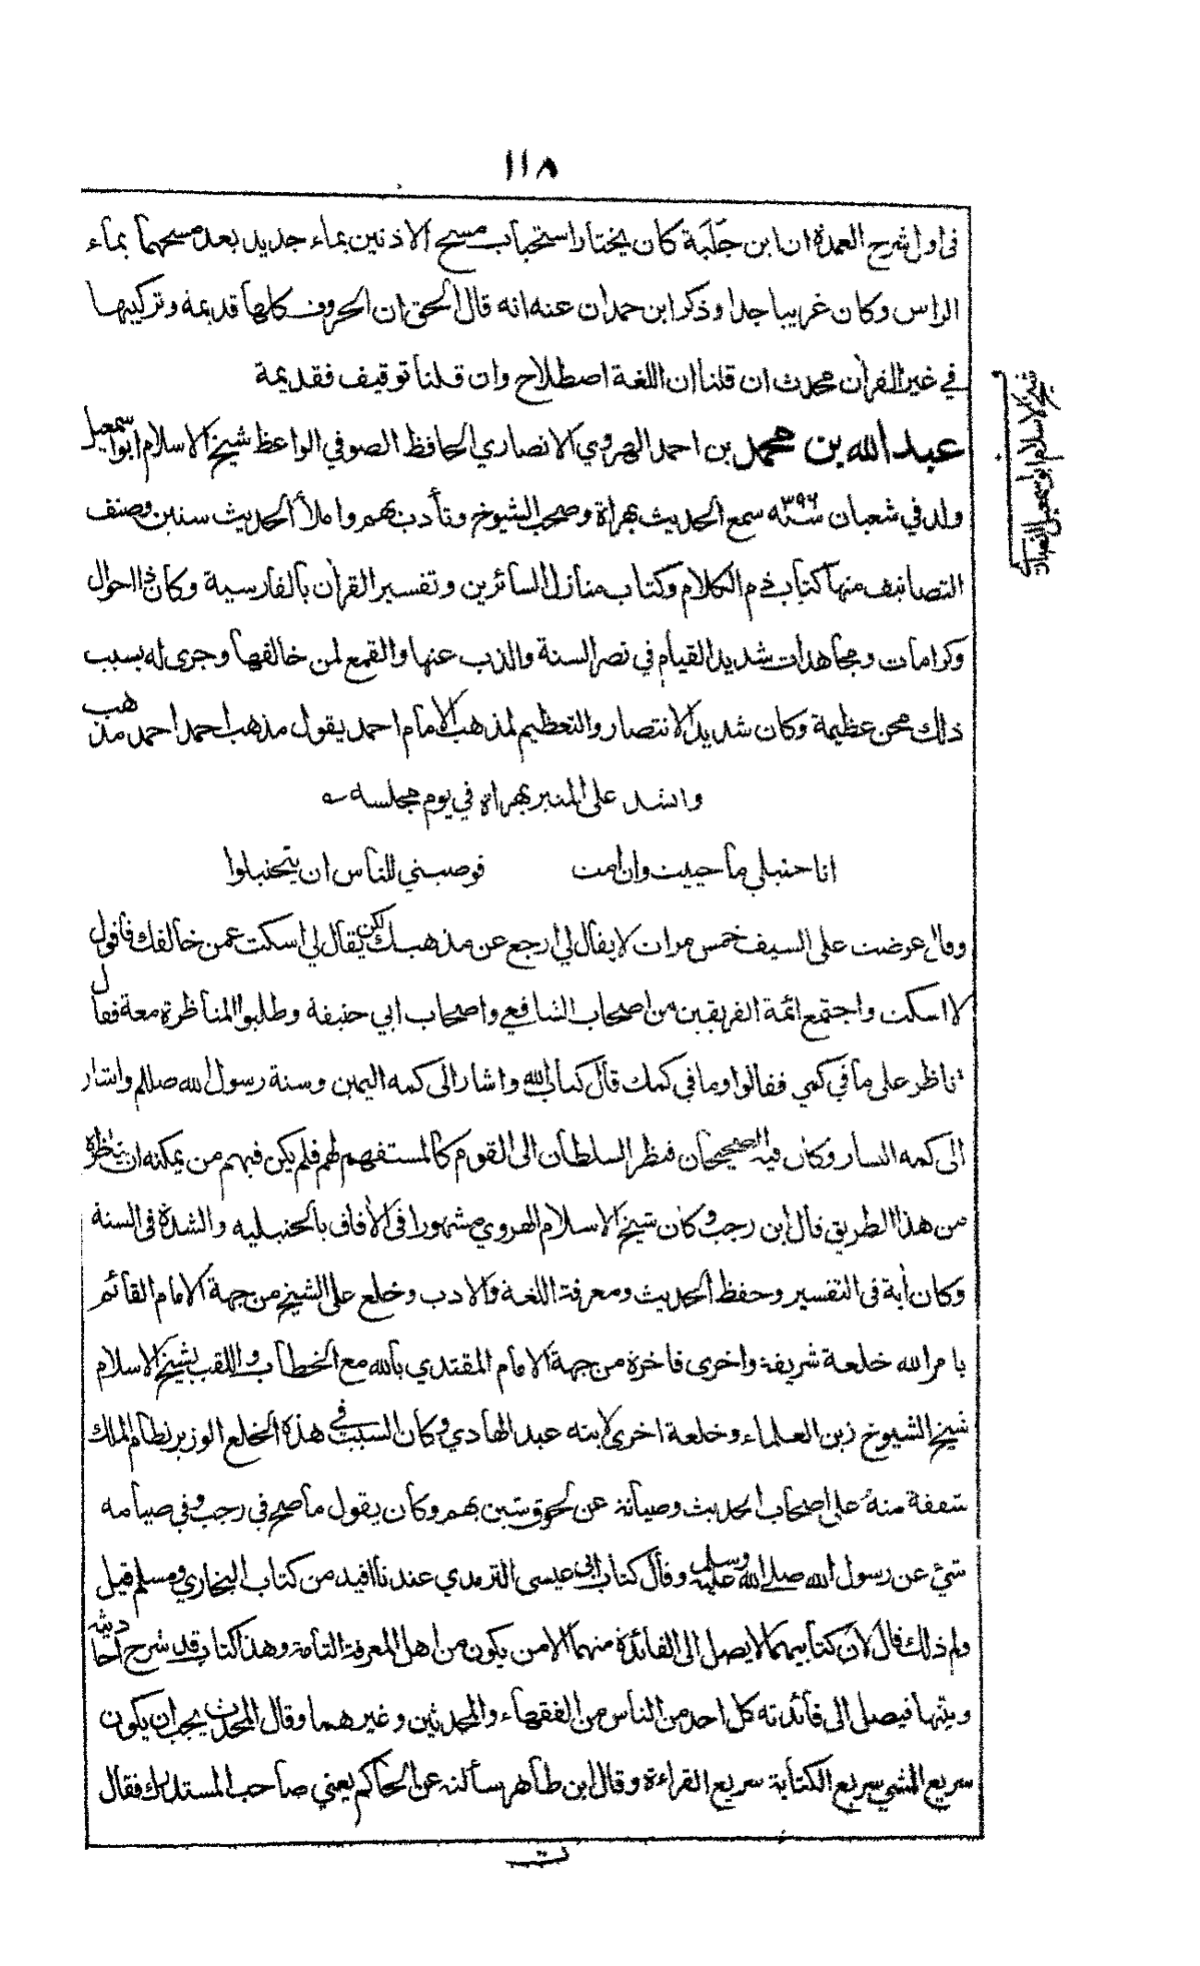 ١١٨
فى اول شرح العمدة ان ابن جلَبَة كان يختار استحباب مسح الاذنين بماء جديد بعد مسحهما بماء
الراس وكان غريبا جدا وذكر ابن حمدان عنه انه قال الحق ان الحروف كلها قديمة وتركيبها
في غير القران محدث ان قلنا ان اللغة اصطلاح وان قلنا توقيف فقديمة
عبد الله بن محمد بن احمد الهروي الانصاري الحافظ الصوفي الواعظ شيخ الاسلام ابو اسمعيل
شيخ الاسلام ابو اسمعيل
ولد في شعبان سنة ٣٩٦ سمع الحديث بهراة وصحب الشيوخ وتأدب بهم واملأ الحديث سنين وصنف
التصانيف منها كتاب ذم الكلام وكتاب منازل السائرين وتفسير القران بالفارسية وكان ذا احوال
وكرامات ومجاهدات شديد القيام في نصر السنة والذب عنها والقمع لمن خالفها وجرى له بسبب
ذلك محن عظيمة وكان شديد الانتصار والتعظيم لمذهب الامام احمد يقول مذهب احمد احمد مذهب
وانشد على المنبر بهراة في يوم مجلسه
انا حنبلي ما حييت وان امت فوصيتي للناس ان يتحنبلوا
وقال عرضت على السيف خمس مرات لا يقال لي ارجع عن مذهبك لكن يقال لي اسكت عمن خالفك فاقول
لا اسكت واجتمع ائمة الفريقين من اصحاب الشافعي واصحاب ابي حنيفة وطلبوا المناظرة معه فقال
اناظر على ما في كمي فقالوا وما في كمك قال كتاب الله واشار الى كمه اليمين وسنة رسول الله صللم واشار
الى كمه اليسار وكان فيه الصحيحان فنظر السلطان الى القوم كالمستفهم لهم فلم يكن فيهم من يمكنه ان يناظره
من هذا الطريق قال ابن رجب وكان شيخ الاسلام الهروي مشهورا فى الافاق بالحنبليه والشدة فى السنة
وكان أية فى التفسير وحفظ الحديث ومعرفة اللغة والادب وخلع على الشيخ من جهة الامام القائم
بامر الله خلعة شريفة واخرى فاخرة من جهة الامام المقتدي بالله مع الخطاب واللقب بشيخ الاسلام
شيخ الشيوخ زين العلماء وخلعة اخرى لابنه عبد الهادي وكان السبب في هذة الخلع الوزير نظام الملك
شفقة منهُ على اصحاب الحديث وصيانة عن لحوق شين بهم وكان يقول ما صح في رجب وفي صيامه
شئ عن رسول الله صلى الله عليه وسلم وقال كتاب ابى عيسى الترمدي عندنا افيد من كتاب البخاري ومسلم قيل
ولم ذلك قال لان كتابيهما لا يصل الى الفائدة منهما الا من يكون من اهل المعرفة التامة وهذا كتاب قد شرح احاديثه
وبينها فيصل الى فائدته كل احد من الناس من الفقهاء والمحدثين وغيرهما وقال المحدث يجب ان يكون
سريع المشي سريع الكتابة سريع القراءة وقال ابن طاهر سألته عن الحاكم يعني صاحب المستدرك فقال